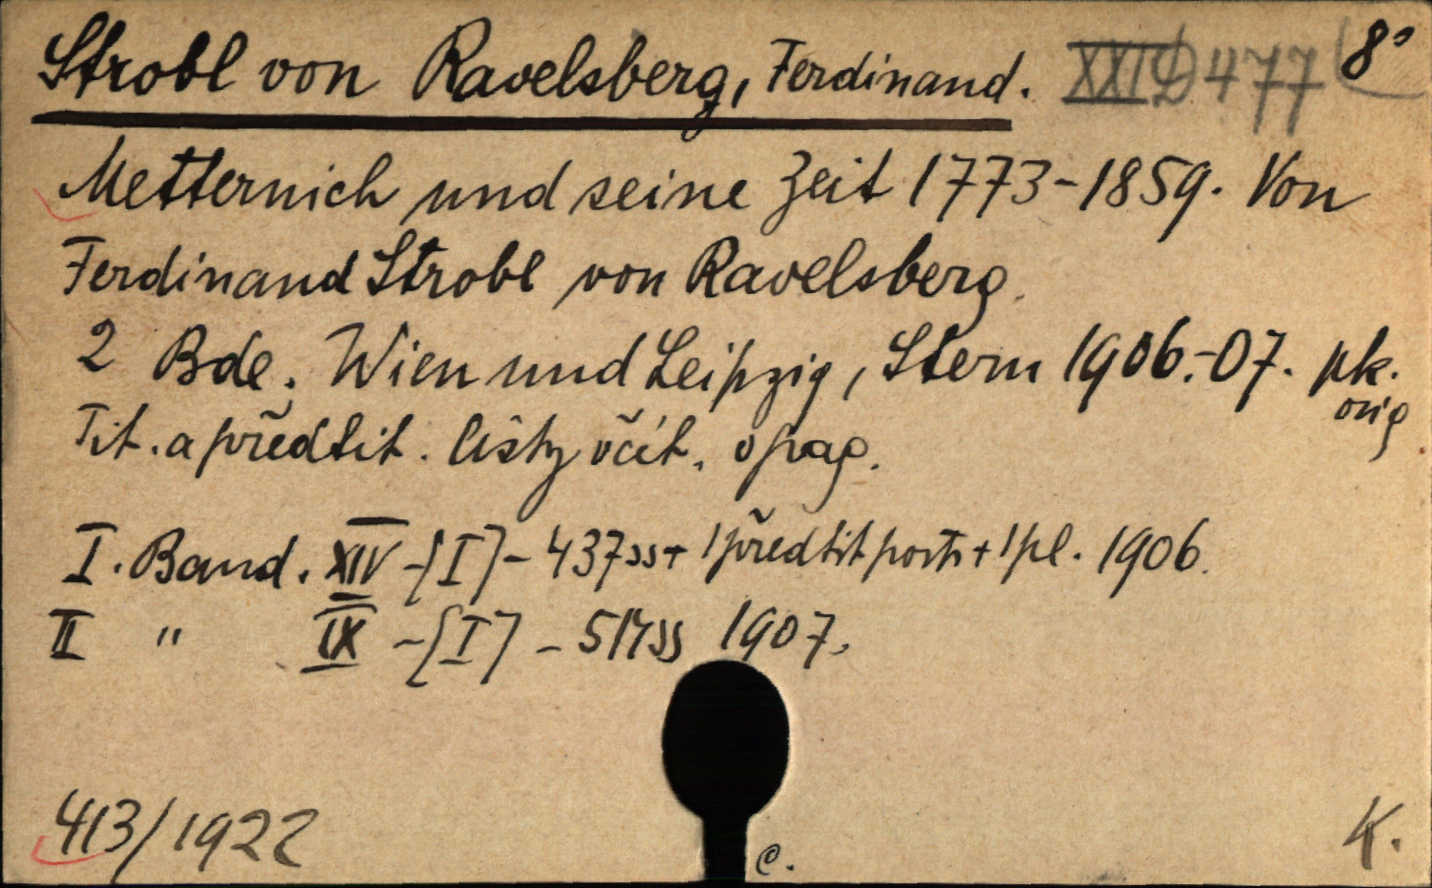 Strobl von Ravelsberg, Ferdinand. XXI D 477 8°
Metternich und seine Zeit 1773-1859. Von
Ferdinand Strobl von Ravelsberg.
2 Bde. Wien und Leipzig, Stern 1906.-07. pk.
orig
Tit. a předtit. listy včít. v pag.
I. Band. XIV-[I]-437ss+1předtit portr+1pl. 1906.
II " IX-[I]-517ss 1907.
413/1922
C.
K.